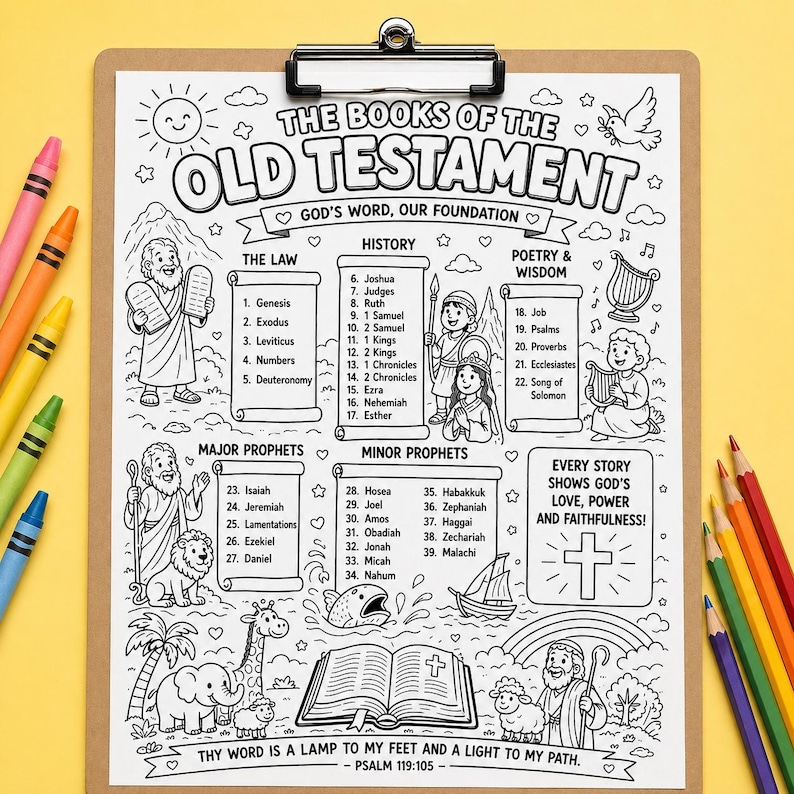 THE BOOKS OF THE
OLD TESTAMENT
GOD'S WORD, OUR FOUNDATION
THE LAW
1. Genesis
2. Exodus
3. Leviticus
4. Numbers
5. Deuteronomy
HISTORY
6. Joshua
7. Judges
8. Ruth
9. 1 Samuel
10. 2 Samuel
11. 1 Kings
12. 2 Kings
13. 1 Chronicles
14. 2 Chronicles
15. Ezra
16. Nehemiah
17. Esther
POETRY &
WISDOM
18. Job
19. Psalms
20. Proverbs
21. Ecclesiastes
22. Song of
Solomon
MAJOR PROPHETS
23. Isaiah
24. Jeremiah
25. Lamentations
26. Ezekiel
27. Daniel
MINOR PROPHETS
28. Hosea
29. Joel
30. Amos
31. Obadiah
32. Jonah
33. Micah
34. Nahum
35. Habakkuk
36. Zephaniah
37. Haggai
38. Zechariah
39. Malachi
EVERY STORY
SHOWS GOD'S
LOVE, POWER
AND FAITHFULNESS!
THY WORD IS A LAMP TO MY FEET AND A LIGHT TO MY PATH.
– PSALM 119:105 –